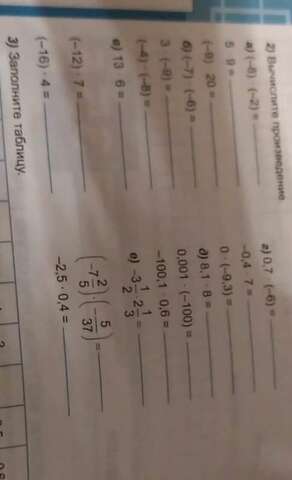 2) Вычислите произведение.
а) (–8) · (–2) =
5 · 9 =
(–9) · 20 =
б) (–7) · (–6) =
3 · (–9) =
(–4) · (–8) =
в) 13 · 6 =
(–12) · 7 =
(–16) · 4 =
г) 0,7 · (–6) =
–0,4 · 7 =
0 · (–9,3) =
д) 8,1 · 8 =
0,001 · (–100) =
–100,1 · 0,6 =
е) –3 1/2 · 2 1/3 =
(–7 2/5) · (– 5/37) =
–2,5 · 0,4 =
3) Заполните таблицу.